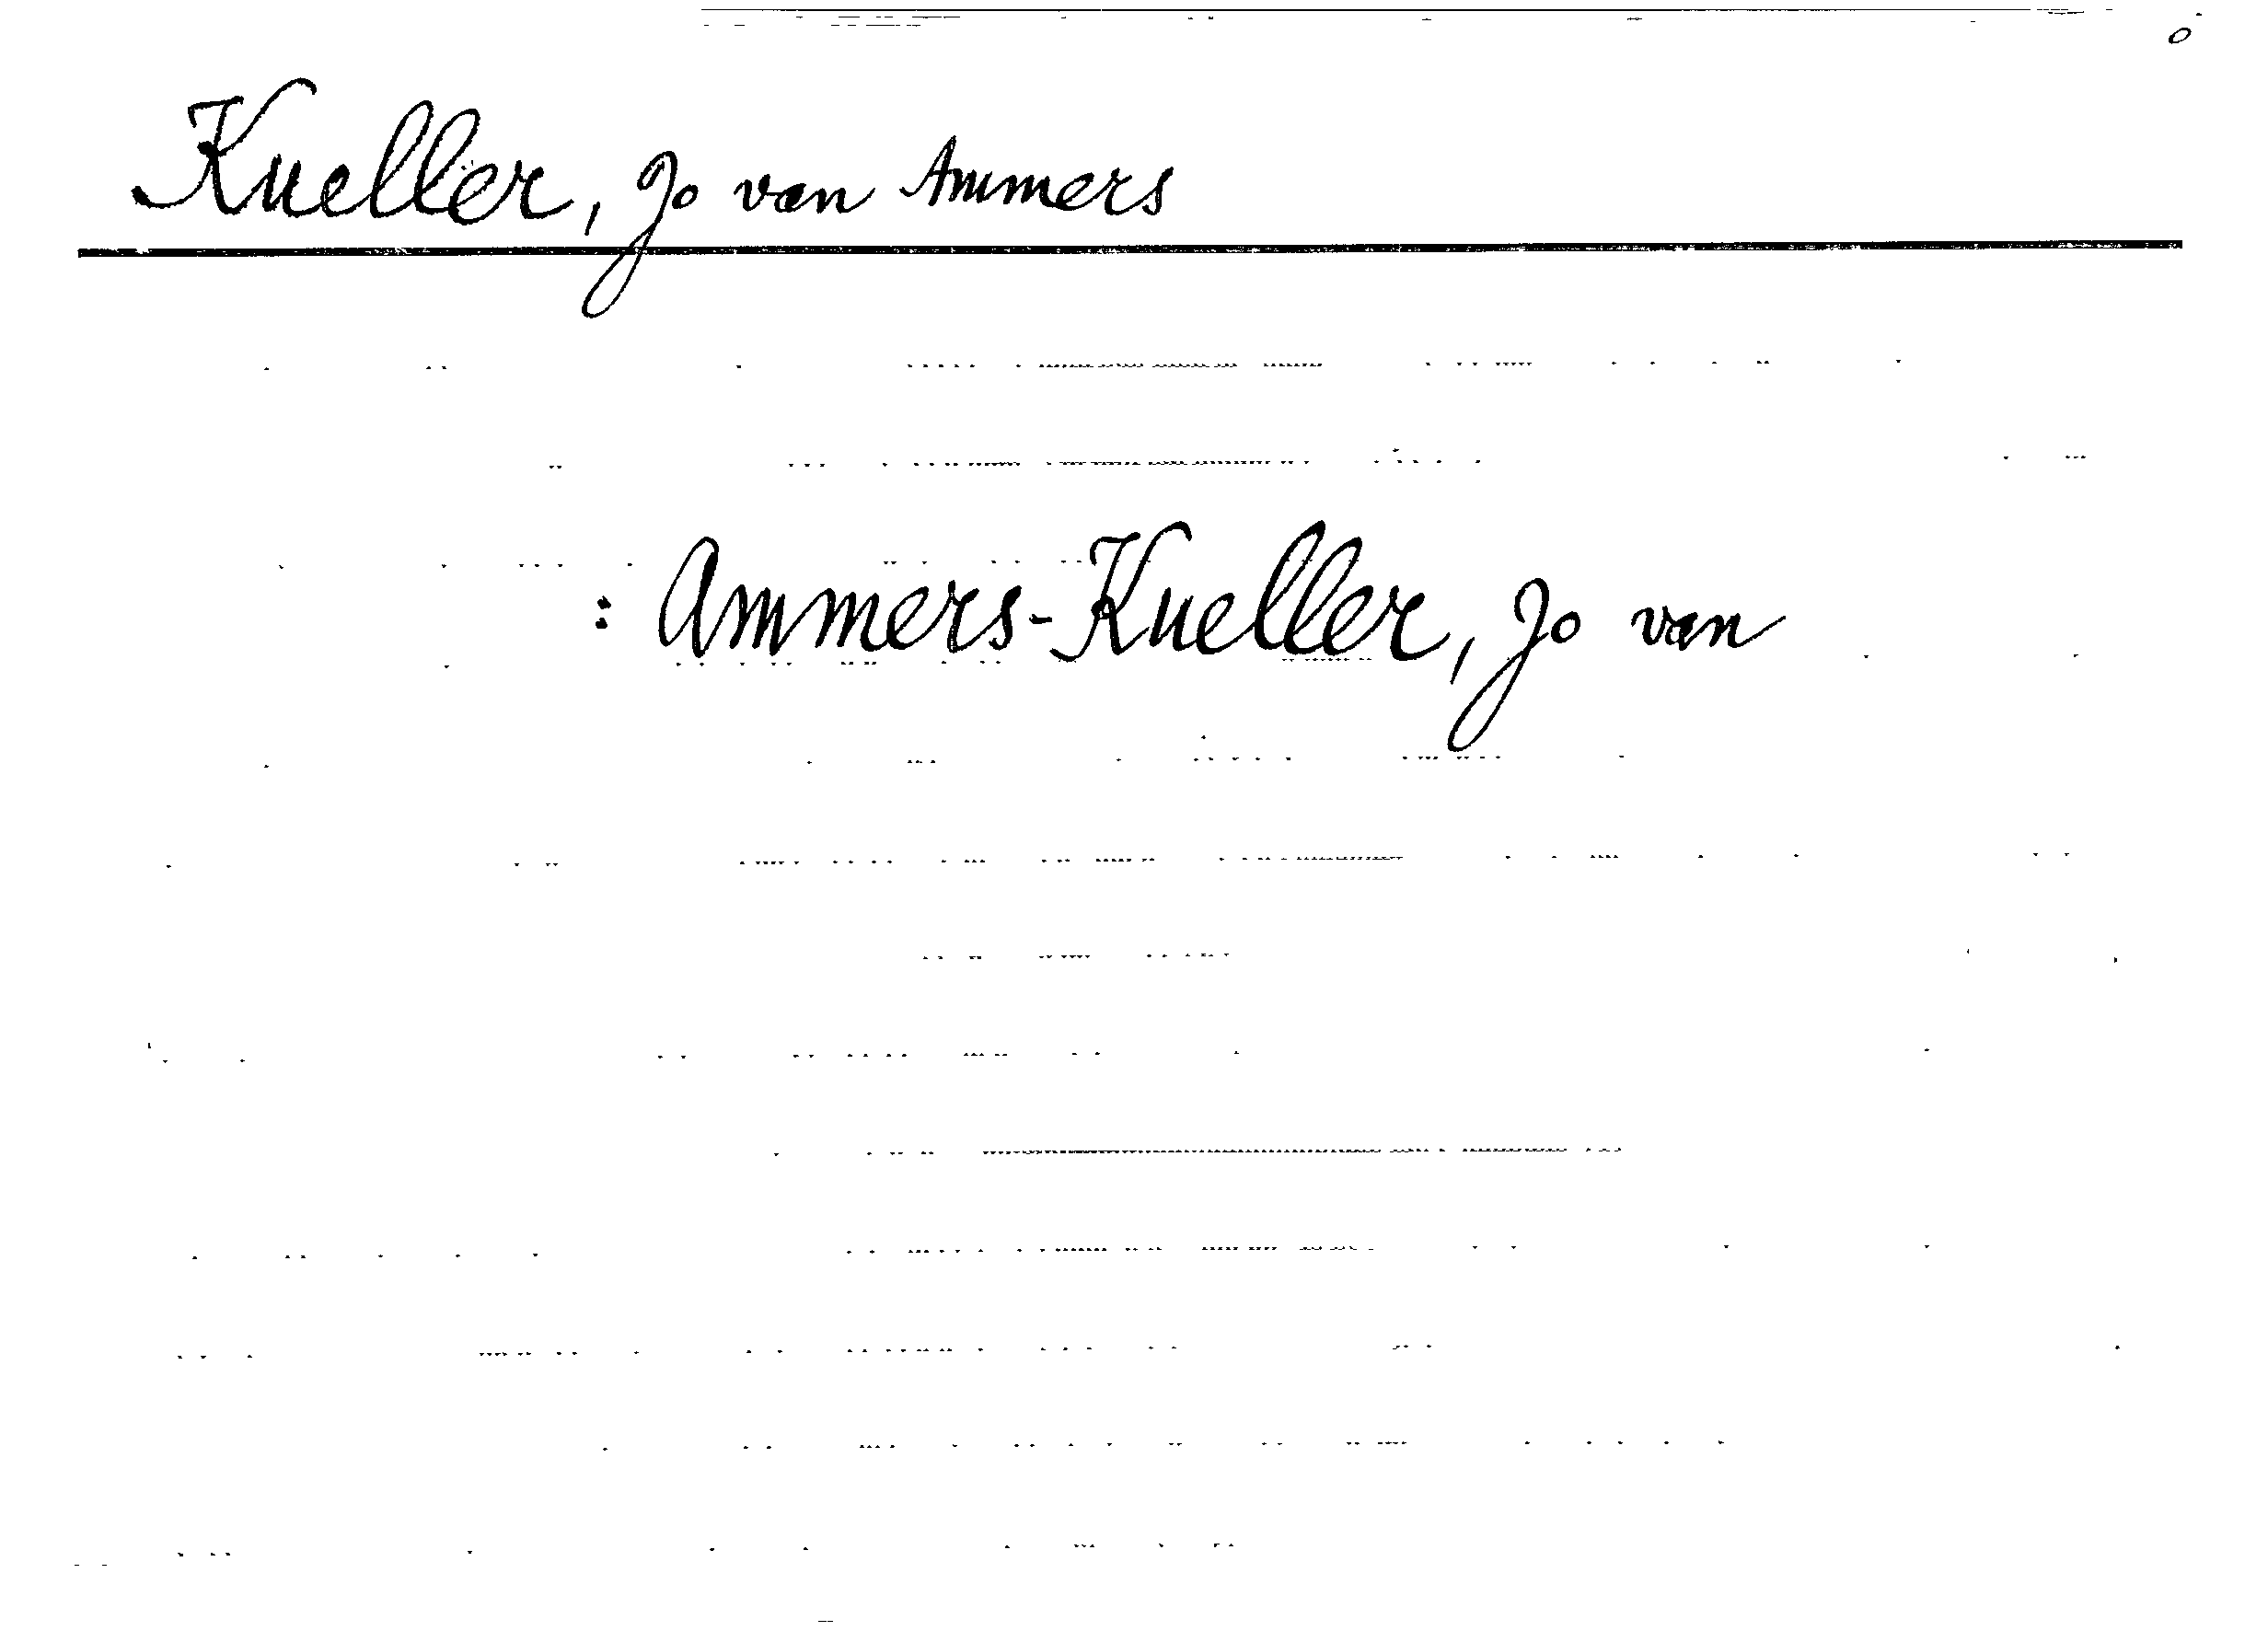 Kueller, Jo van Ammers
: Ammers-Kueller, Jo van